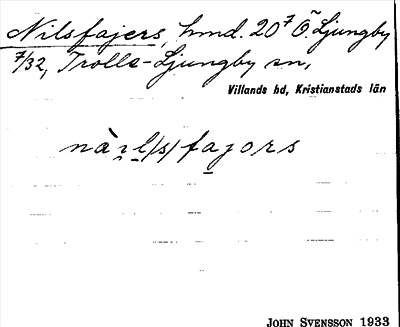 Nilsfajers, hmd. 20⁷ Ö. Ljungby
⁷/32, Trolle-Ljungby sn,
Villands hd, Kristianstads län
nàɪ̯l̠/s/fa̠jors
JOHN SVENSSON 1933